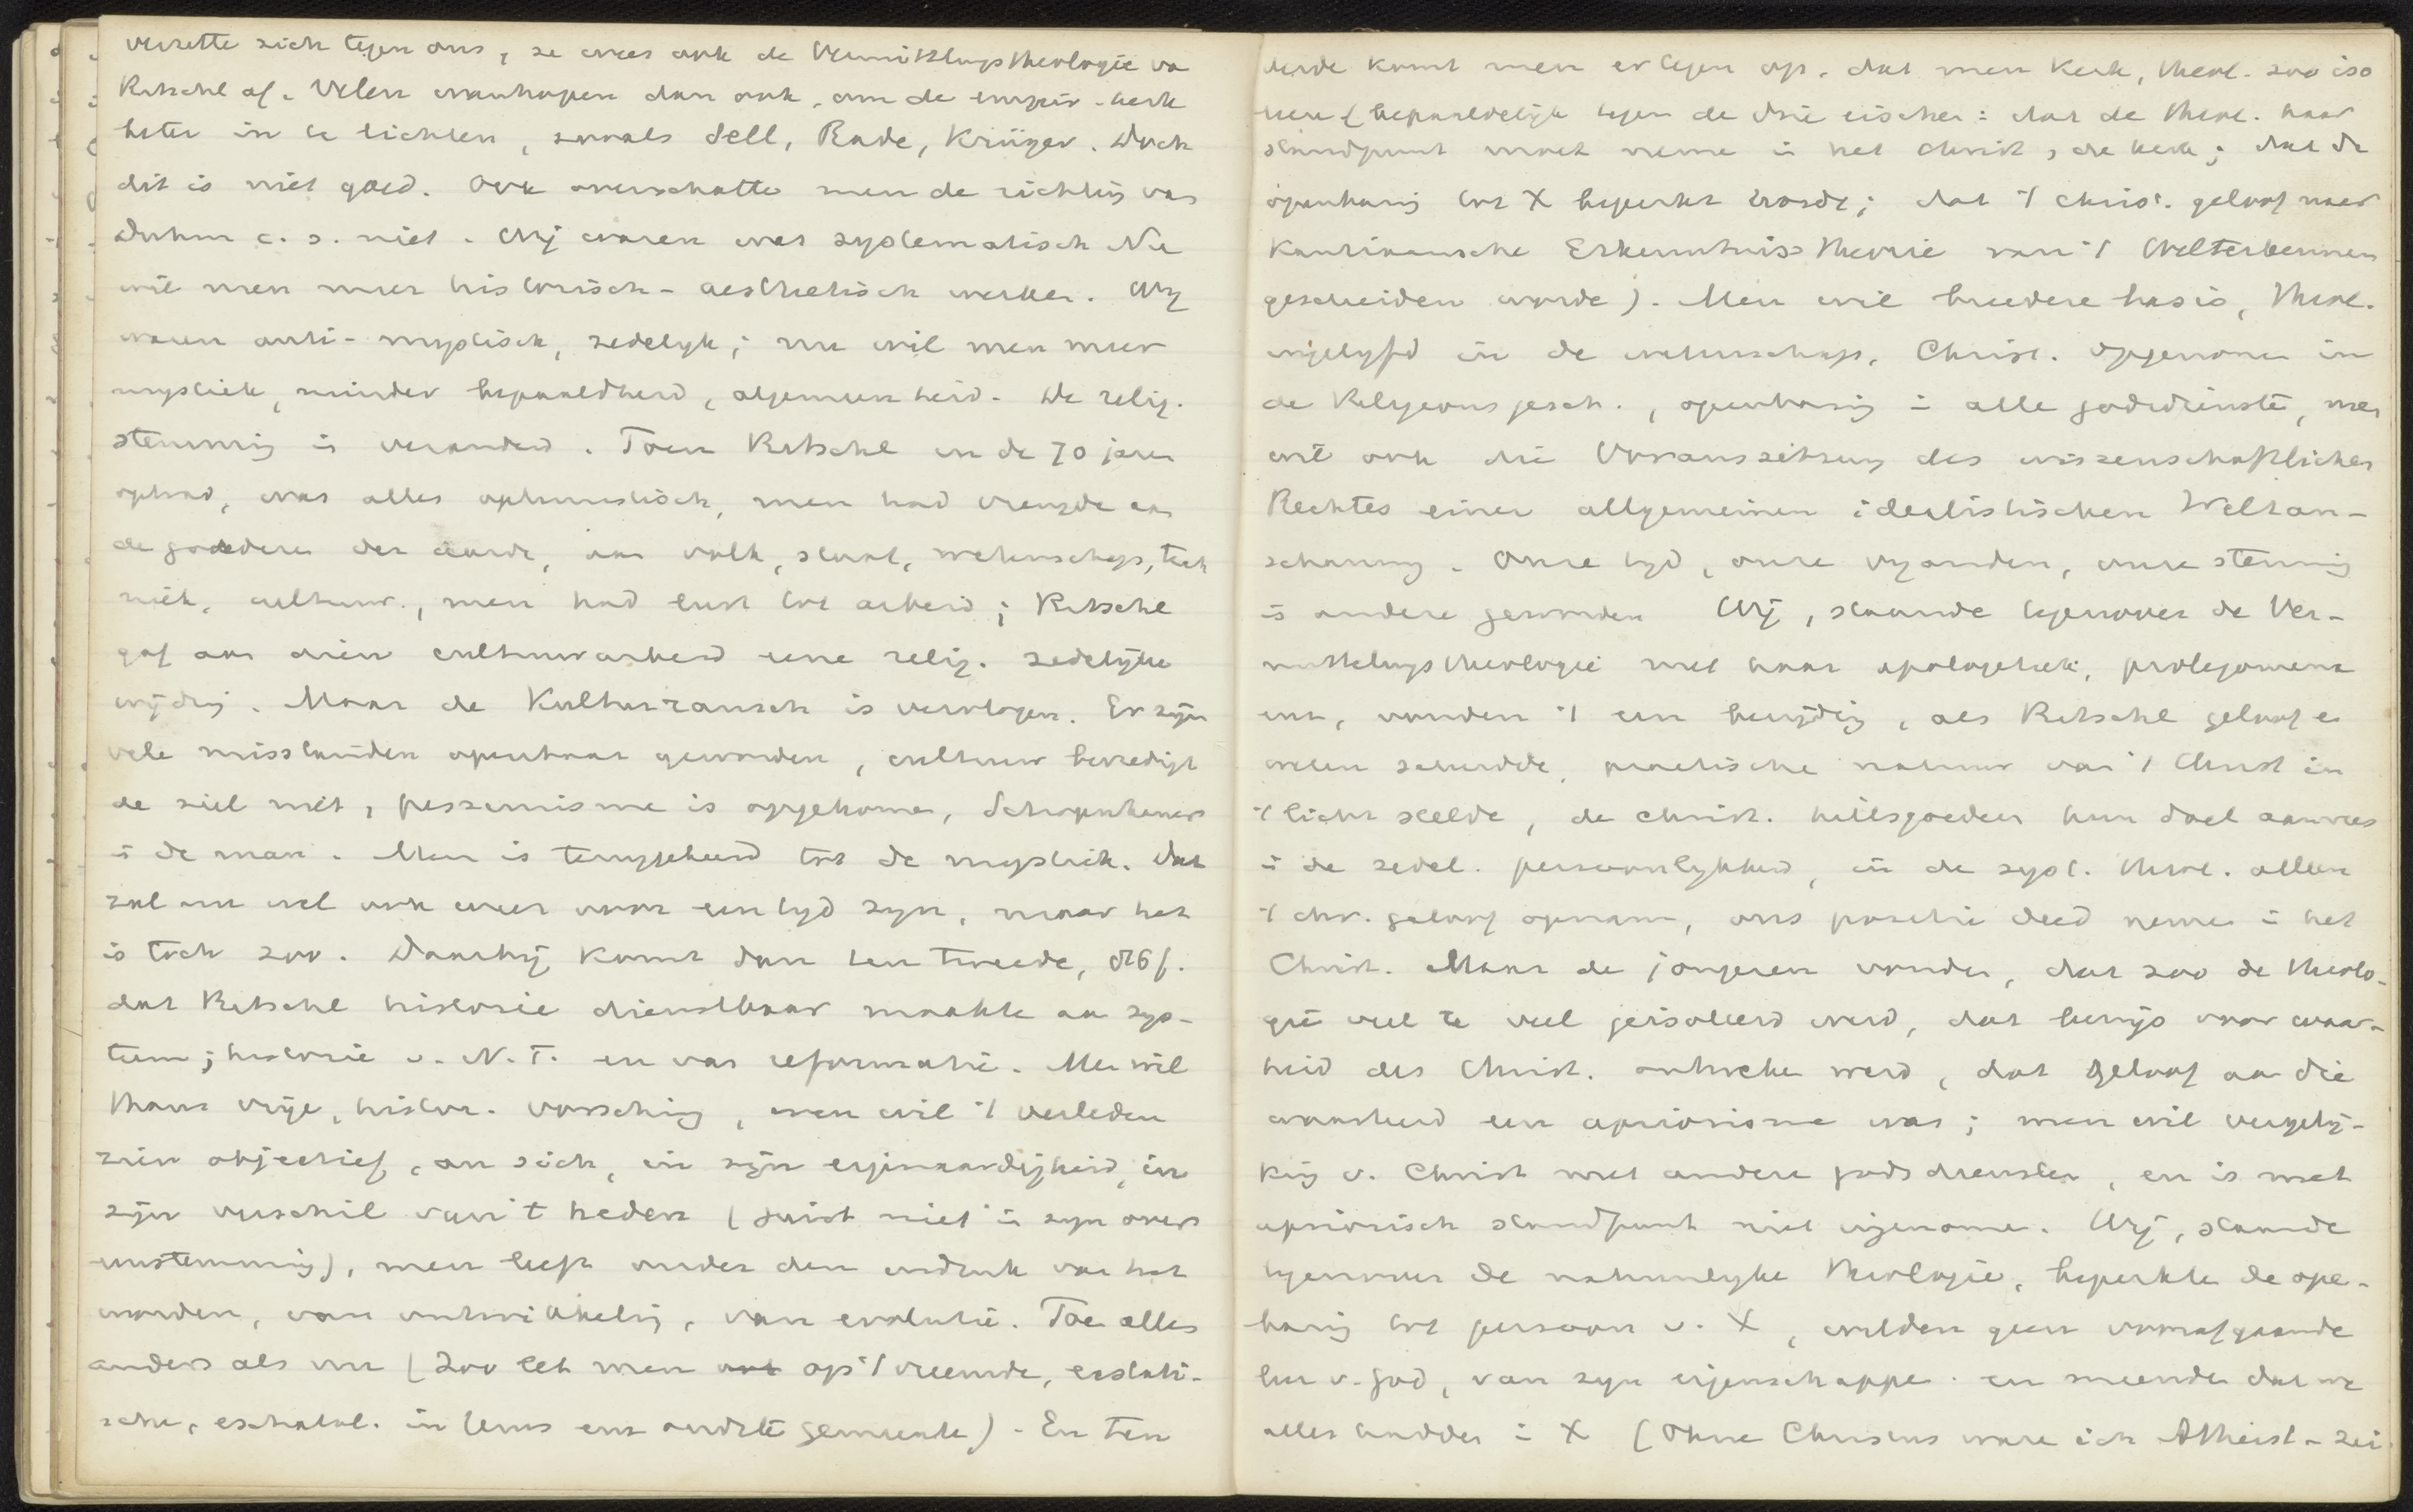 verzette zich tegen ons, ze wees ook de Vermittlungstheologie va
Ritschl af. Velen wanhopen dan ook, om de empir. kerk
beter in te lichten, zooals Sell, Rade, Krüger. Doch
dit is niet goed. Ook overschatte men de richting van
Duhm c. s. niet. Wij waren meer systematisch Nu
wil men meer historisch-aesthetisch werken. Wij
waren anti-mystisch, zedelyk; nu wil men meer
mystiek, minder bepaaldheid, algemeenheid. De relig.
stemming is veranderd. Toen Ritschl in de 70 jaren
optrad, was alles optimistisch, men had vreugde aan
de goederen der aarde, aan volk, staat, wetenschap, tech
niek, cultuur, men had lust tot arbeid; Ritschl
gaf aan dien cultuurarbeid eene relig. zedelijke
wijding. Maar de Kulturrausch is vervlogen. Er zijn
vele misstanden openbaar geworden, cultuur bevredigt
de ziel niet, pessimisme is opgekomen, Schopenhauer
is de man. Men is teruggekeerd tot de mystiek. Dat
zal nu wel ook weer voor een tyd zyn, maar het
is toch zoo. Daarbij komt dan ten tweede,
dat Ritschl historie dienstbaar maakte aan sys-
teem; historie v. N. T. en van reformatie. Men wil
thans vrije, histor. vorsching, men wil 't verleden
zien objectief, an sich, in zijn eigenaardigheid, in
zijn verschil van 't heden (juist niet in zyn overe
enstemming), men leeft onder den indruk van het
worden, van ontwikkeling, van evolutie. Toen alles
anders als nu (Zoo let men op 't vreemde, extati-
sche, eschatol. in Jezus enz oudste gemeente). En ten
derde komt men er tegen op, dat men kerk, theol. zoo iso
leere (bepaaldelijk tegen de drie eischen: dat de theol. haar
standpunt moet neme in het christ, de kerk; dat de
openbaring tot X beperkt worde; dat 't christ. geloof naar
Kantiaansche Erkenntnis Theorie van 't Welterkennen
gescheiden worde). Men wil breedere basis, theol.
ingelyfd in de wetenschap, Christ. opgenomen in
de Religionsgesch., openbaring in alle godsdienste, men
wil ook die Voraussetzung des wissenschaftlichen
Rechtes einer allgemeinen idealistischen Weltan-
schauung. Onze tyd, onze vyanden, onze stemming
is andere geworden Wij, staande tegenover de Ver-
mittelungstheologie met haar apologetiek, prolegomena
enz, vonden 't een bevrijding, als Ritschl geloof e
weten scheidde, practische natuur van 't Christ in
't licht stelde, de christ. heilsgoederen hun doel aanwees
in de zedel. persoonlykheid, in de syst. theol. alleen
't chr. geloof opnam, ons positie deed neme in het
Christ. Maar de jongeren vonden, dat zoo de theolo-
gie veel te veel geisoleerd werd, dat bewijs voor waar-
heid des Christ. ontbreke werd, dat geloof aan die
waarheid een apriorisme was; men wil vergelij-
king v. Christ met andere godsdiensten, en is met
apriorisch standpunt niet ingenome. Wij, staande
tegenover de natuurlyke theologie, beperkte de ope-
baring tot persoon v. X, wilden geen voorafgaande
leer v. God, van zyn eigenschappe. en meende dat we
alles hadden in X (Ohne Christus wäre ich Atheist - zei